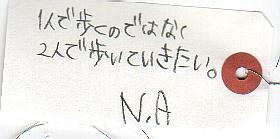 1人で歩くのではなく
2人で歩いていきたい。
N.A